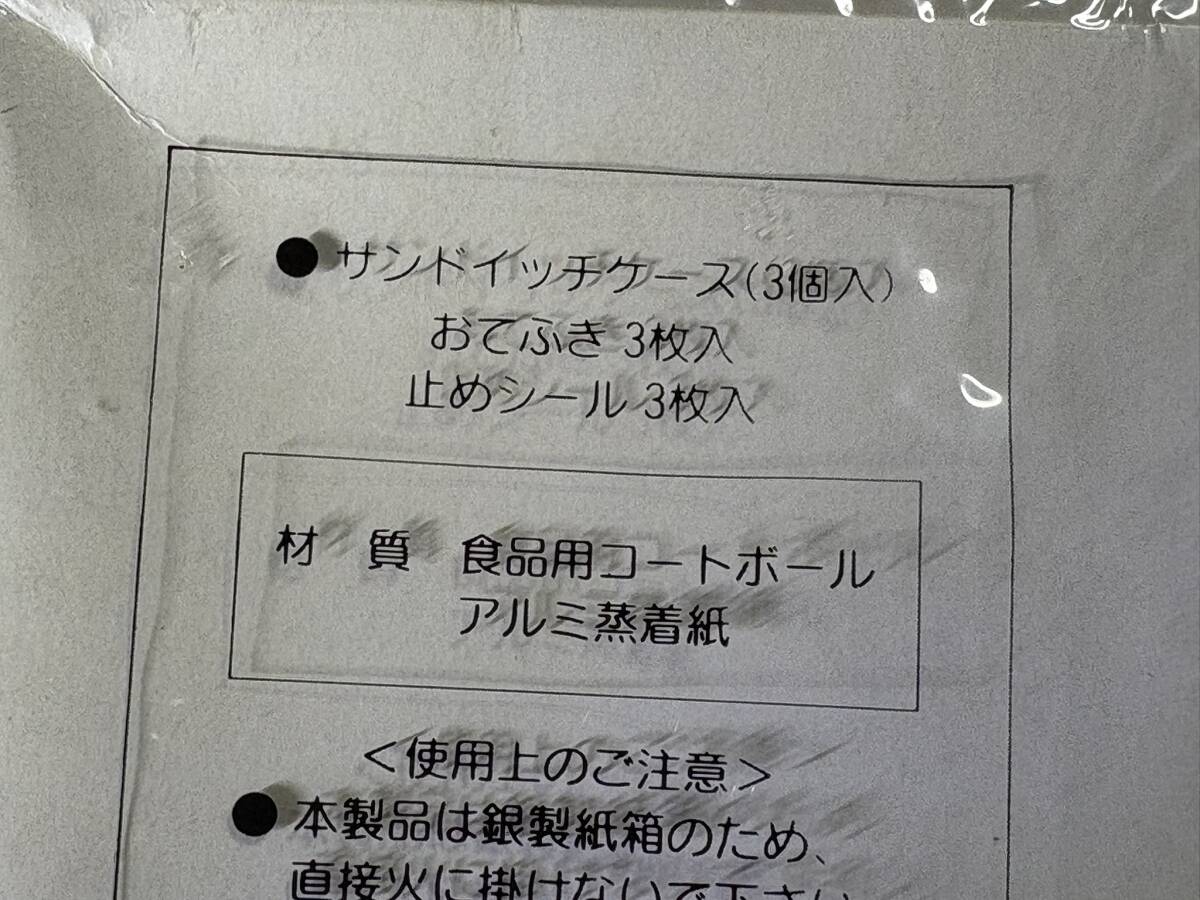 ●サンドイッチケース(3個入)
おてふき 3枚入
止めシール 3枚入
材 質 食品用コートボール
アルミ蒸着紙
<使用上のご注意>
●本製品は銀製紙箱のため、
直接火に掛けないで下さい